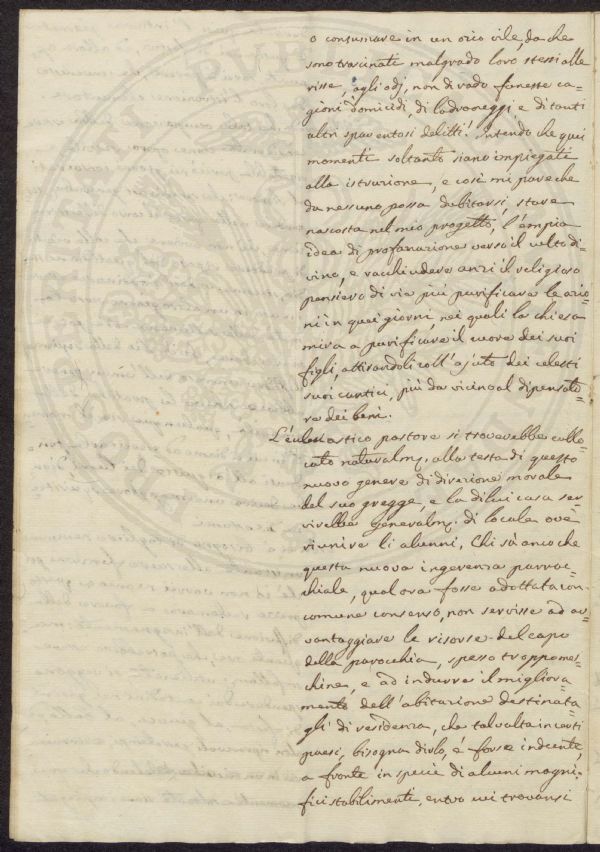 o consumare in un ozio vile, da che
sono trascinati malgrado loro stessi alle
risse, agli odj, non di rado funeste ca=
gioni d'omicidi, di ladroneggi, e di tanti
altri spaventosi delitti! Intendo che quei
momenti soltanto siano impiegati
alla istruzione, e così mi pare che
da nessuno possa dubitarsi, stare
nascosta nel mio progetto, l'empia
idea di profanazione verso il culto di=
vino, e racchiudere anzi il religioso
pensiero di via più purificare le azio=
ni in quei giorni, nei quali la chiesa
mira a purificare il cuore dei suoi
figli, attirandoli coll'ajuto dei celesti
suoi cantici, più da vicino al dipensato=
re dei beni.
L'eclesiastico pastore si troverebbe collo=
cato naturalm. alla testa di questo
nuovo genere di direzione morale
del suo gregge, e la di lui casa ser=
virebbe generalm. di locale ove
riunire li alunni, Chi sà anco che
questa nuova ingerenza parroc=
chiale, qual ora fosse adottata con
comune consenso, non servisse ad av=
vantaggiare le risorse del capo
della parocchia, spesso troppo mes=
chine, e ad indurre il migliora=
mento dell'abitazione destinata=
gli di residenza, che talvolta in certi
paesi, bisogna dirlo, é forse indecente,
a fronte in specie di alcuni magni=
fici stabilimenti, entro cui trovansi